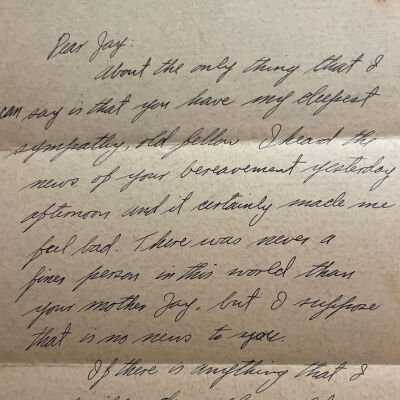 Dear Jay:
About the only thing that I
can say is that you have my deepest
sympathy, old fellow. I heard the
news of your bereavement yesterday
afternoon and it certainly made me
feel bad. There was never a
finer person in this world than
your mother Jay, but I suppose
that is no news to you.
If there is anything that I